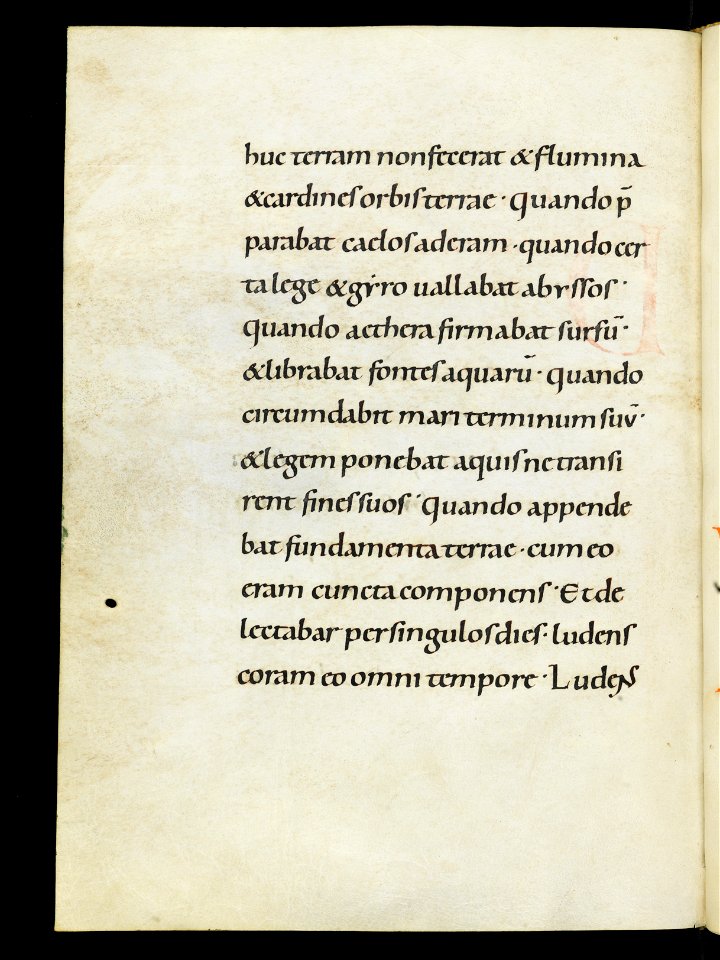 huc terram nonfecerat &flumina
&cardinesorbisterrae · quando p̄
parabat caelosaderam · quando cer
ta lege &gẏro uallabat abyssos ·
quando aetherafirmabat sursū ·
&librabat fontesaquarū · quando
circumdabit mariterminumsuū ·
&legem ponebat aquisnetransi
rent finessuos · Quando appende
bat fundamentaterrae · cumeo
eram cunctacomponens · Etde
lectabar persingulosdies · ludens
coram eo omni tempore · Ludens